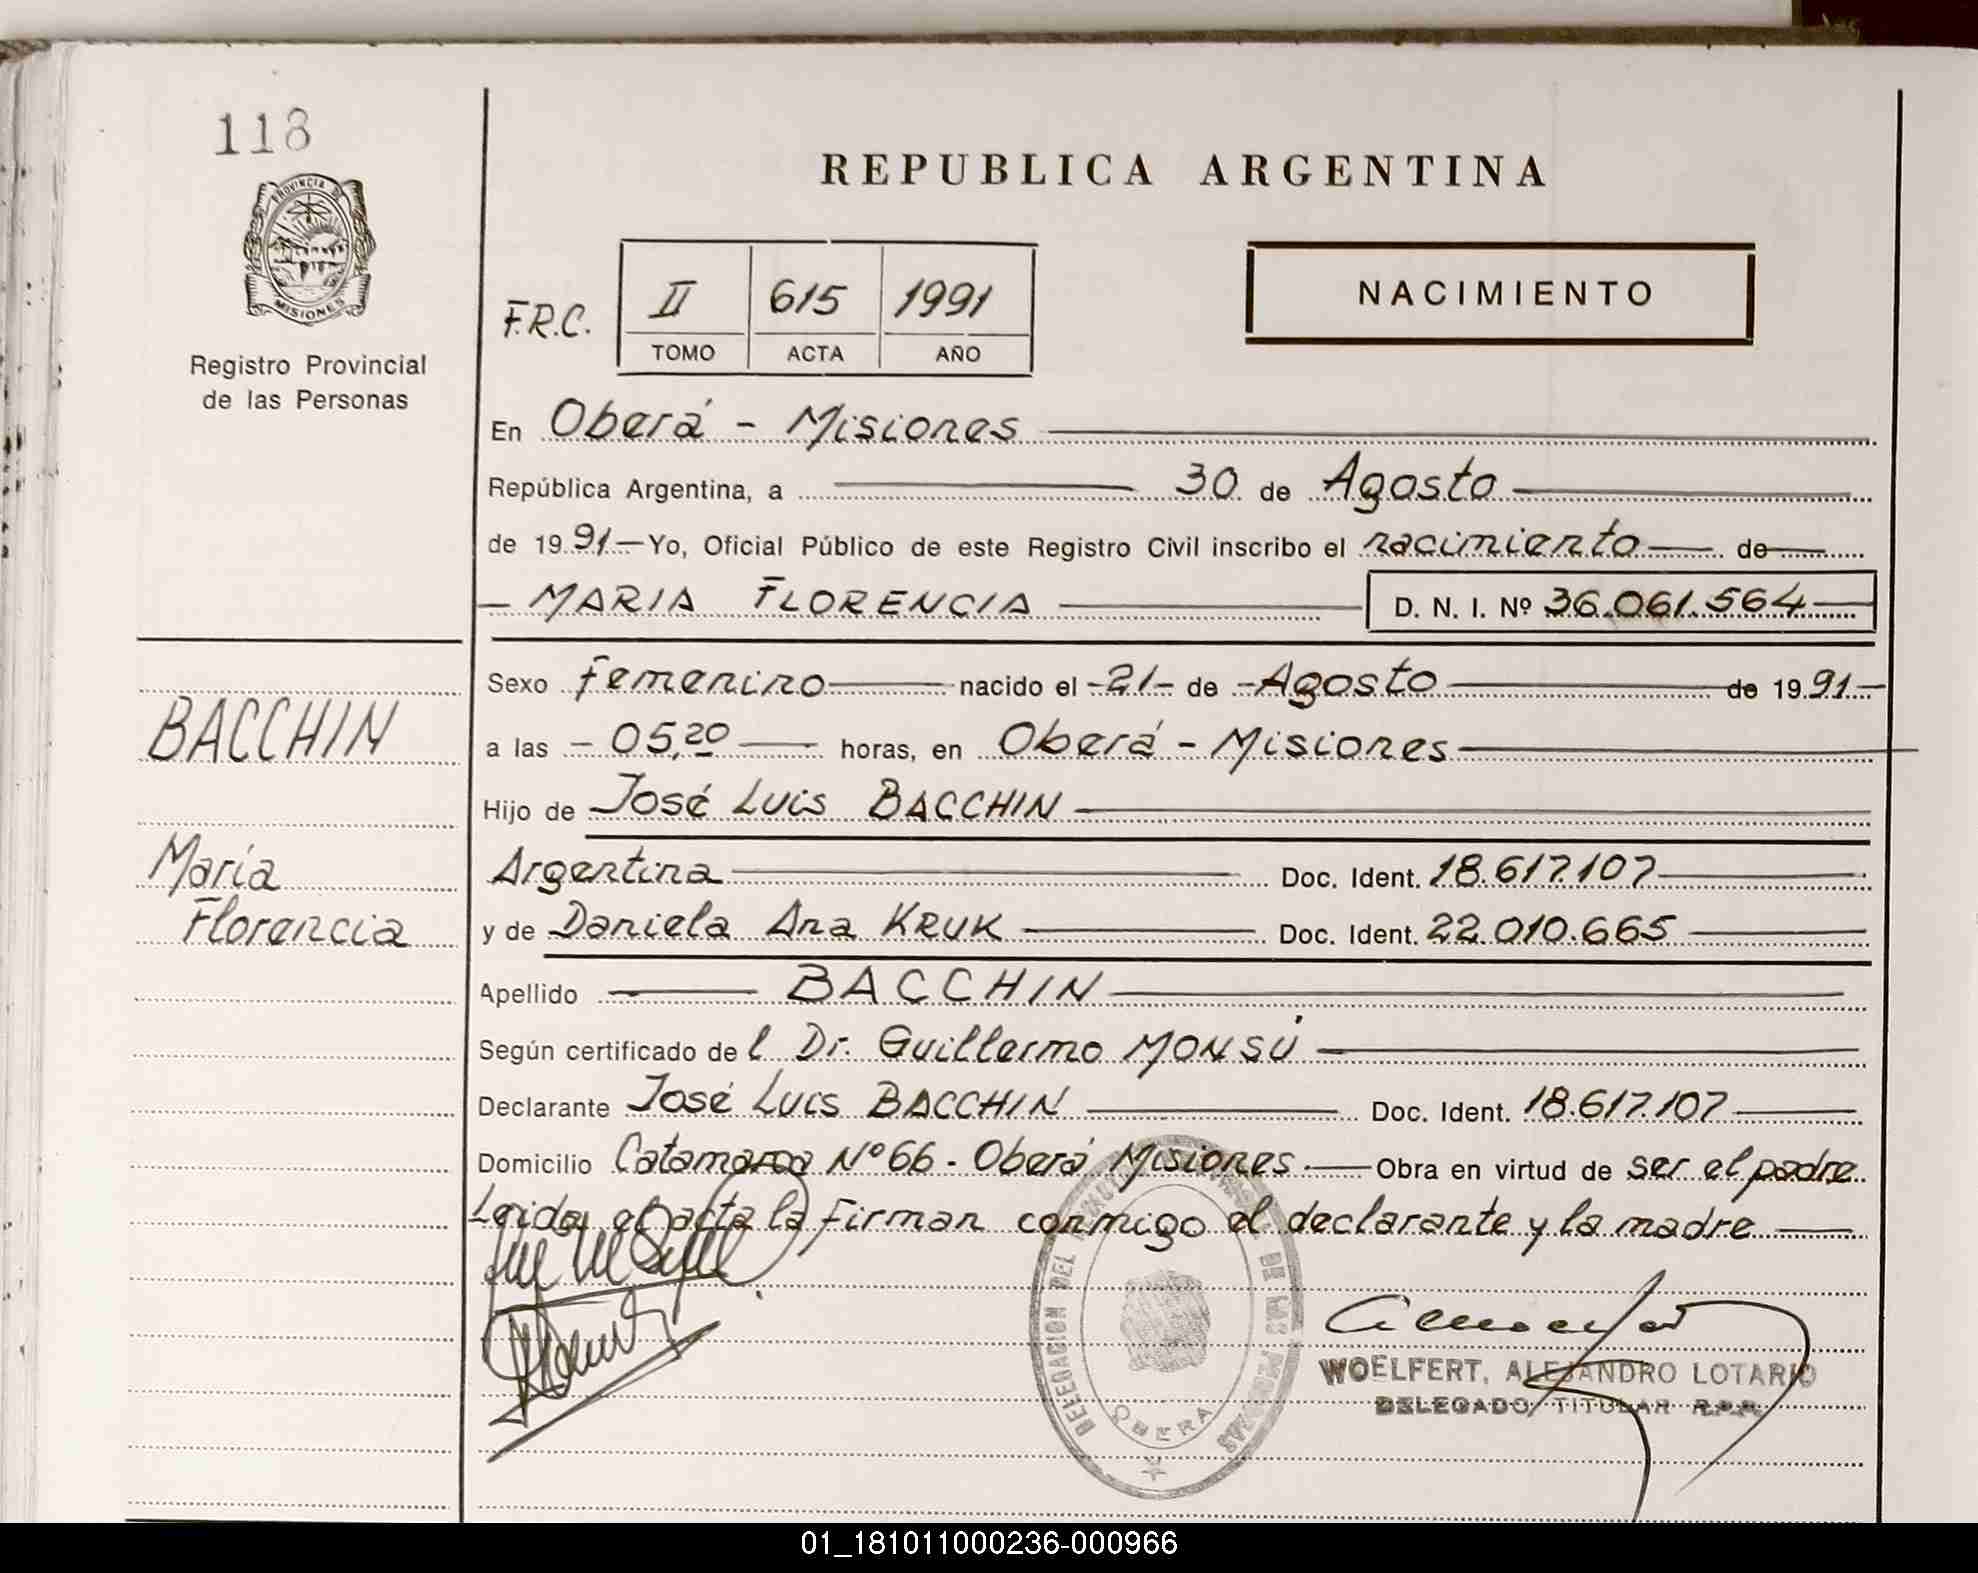 118
PROVINCIA DE
MISIONES
Registro Provincial
de las Personas
REPUBLICA ARGENTINA
F.R.C.
II 615 1991
TOMO ACTA AÑO
NACIMIENTO
En Oberá - Misiones
República Argentina, a 30 de Agosto
de 1991 — Yo, Oficial Público de este Registro Civil inscribo el nacimiento de
- MARIA FLORENCIA D. N. I. Nº 36.061.564
Sexo Femenino nacido el -21- de - Agosto de 1991-
a las - 05,20 horas, en Oberá - Misiones
Hijo de José Luis BACCHIN
Argentina Doc. Ident. 18.617.107
y de Daniela Ana KRUK Doc. Ident. 22.010.665
Apellido BACCHIN
Según certificado de l Dr. Guillermo MONSÚ
Declarante José Luis BACCHIN Doc. Ident. 18.617.107
Domicilio Catamarca Nº 66 - Oberá Misiones Obra en virtud de ser el padre
Leida el acta la firman conmigo el declarante y la madre
BACCHIN
María
Florencia
DELEGACION DEL DE LAS PERSONAS
OBERA
WOELFERT, ALEJANDRO LOTARIO
DELEGADO TITULAR R.P.P.
01_181011000236-000966